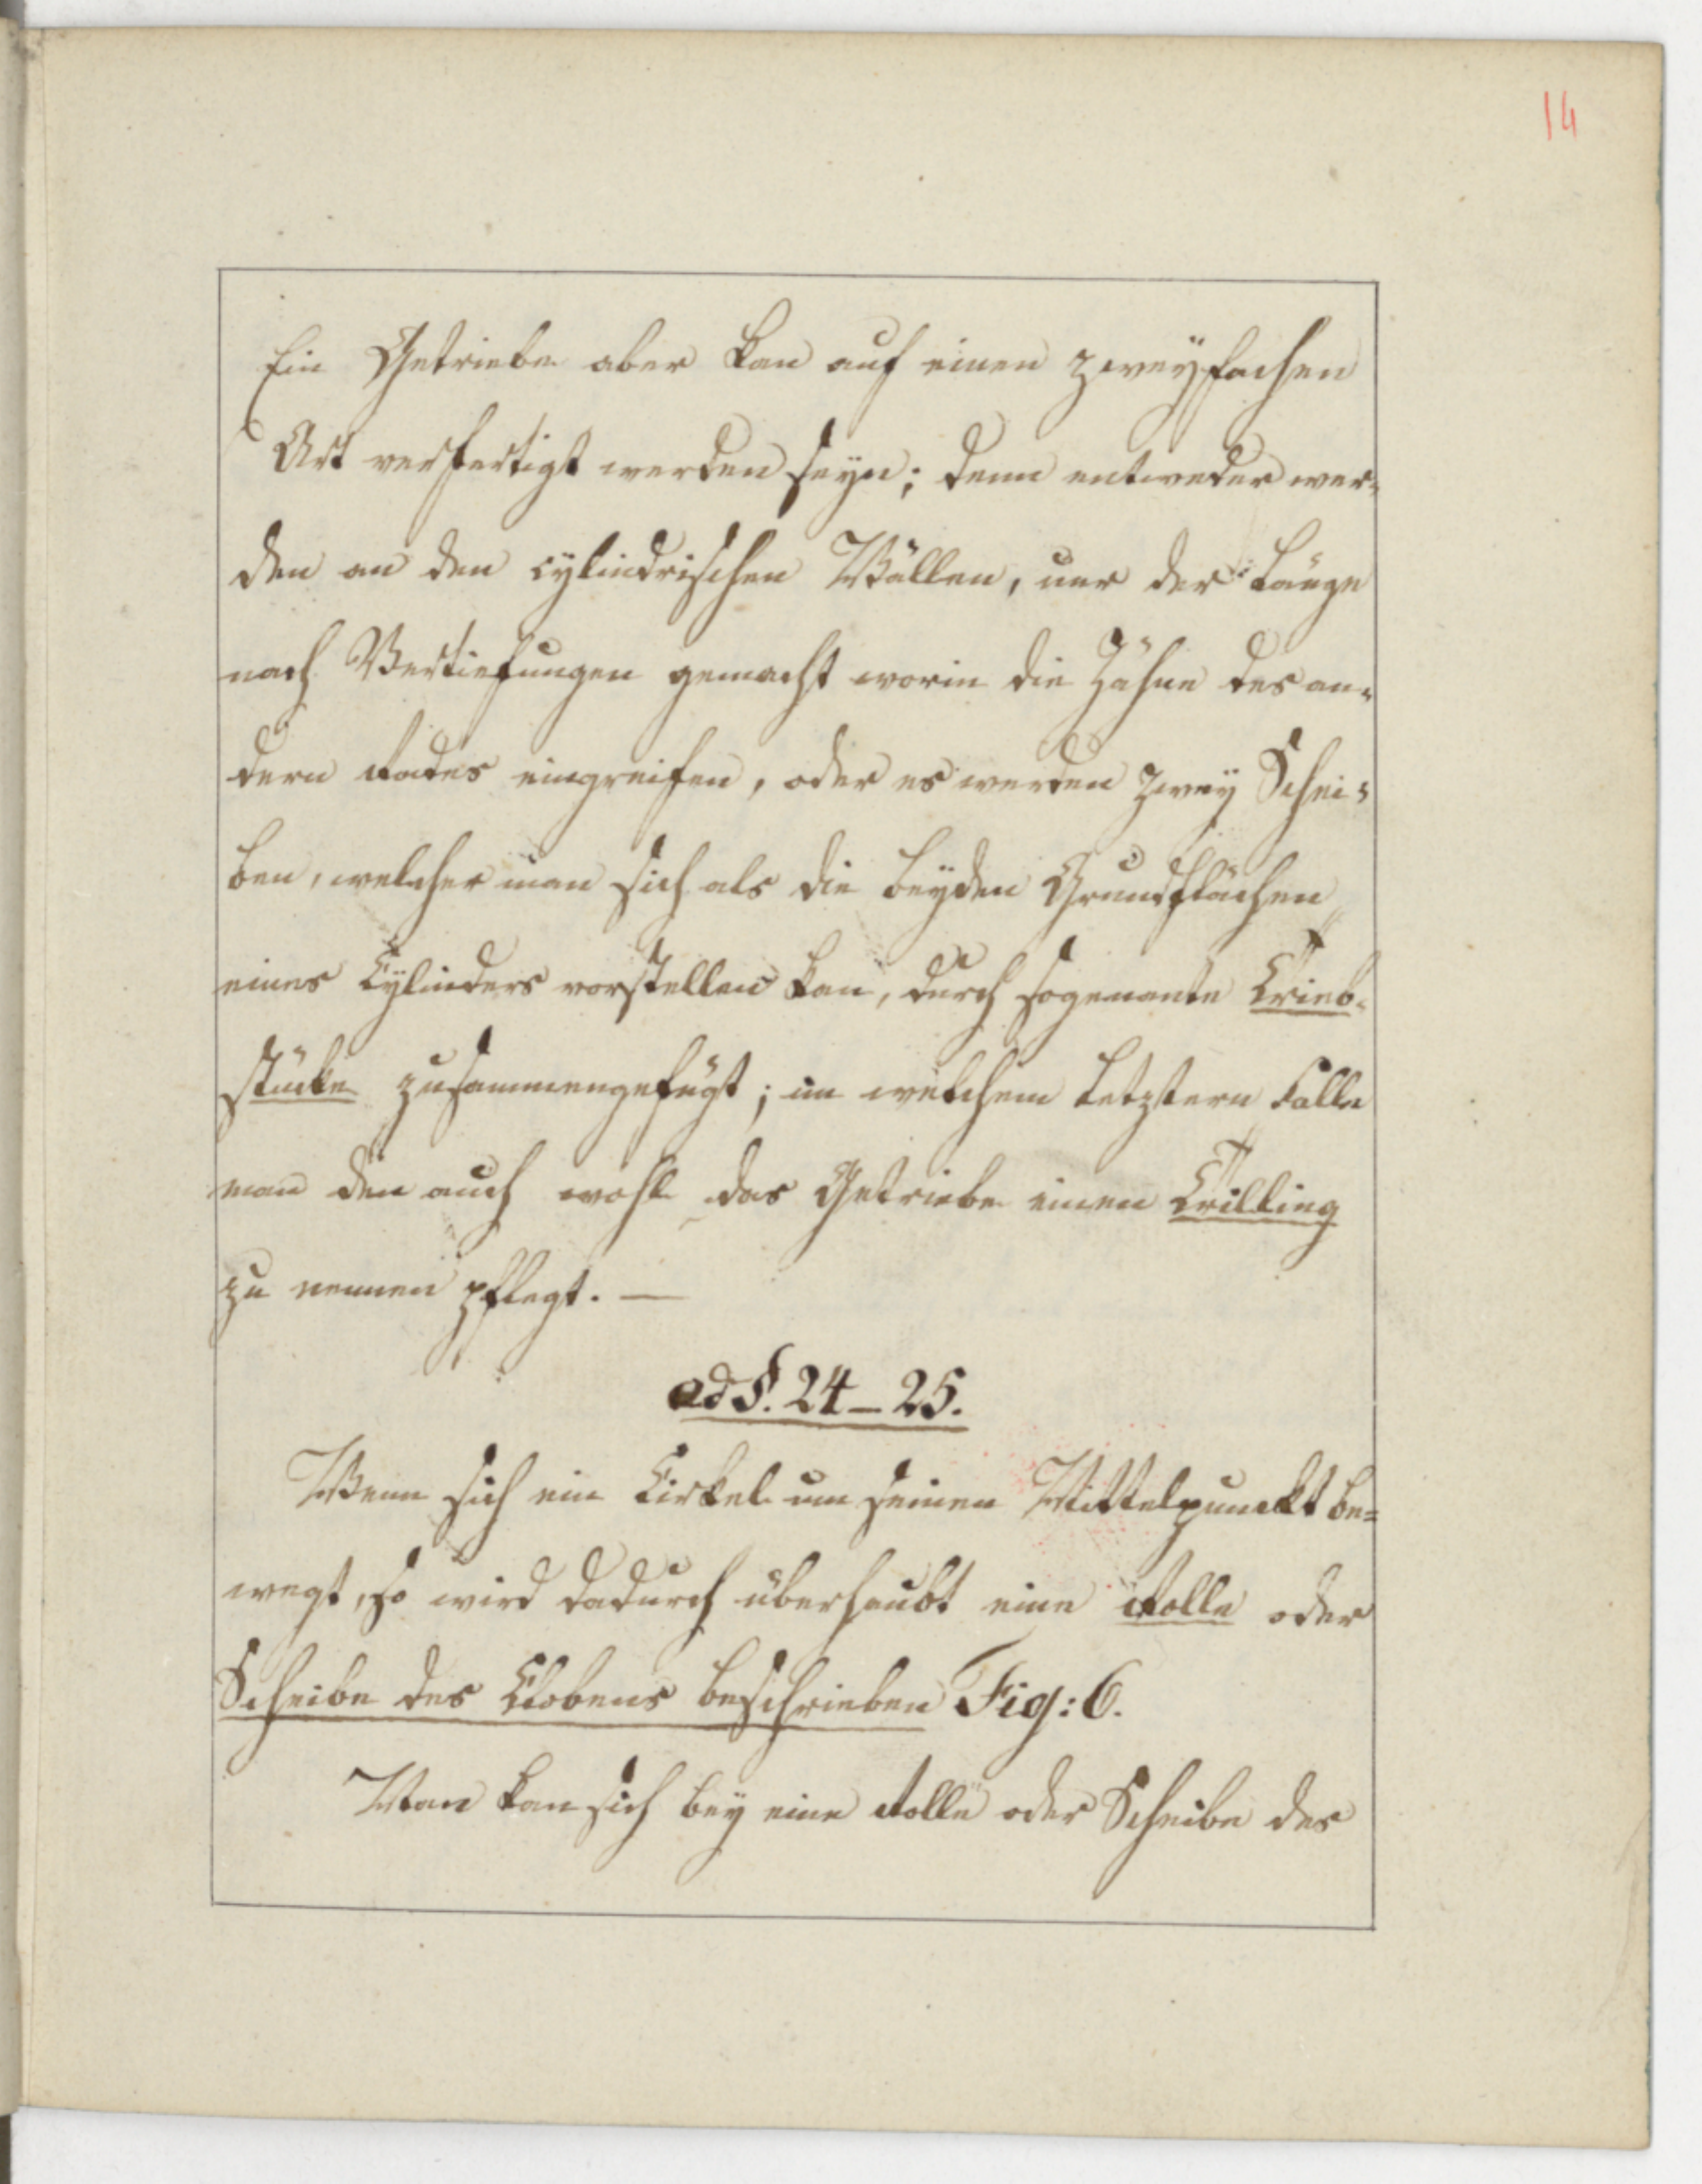 14
Ein Getriebe aber kan auf einen zweyfachen
Art verfertigt werden seyn; denn entweder wer-
den an den cylindrischen Wällen, nur der Länge
nach Vertiefungen gemacht worin die Zähne des an-
dern Rades eingreifen, oder es werden zwey Schei-
ben, welcher man sich als die beyden Grundflächen
eines Cylinders vorstellen kan, durch sogenante Trieb-
stücke zusammengefügt; im welchem letztern Falle
man den auch wohl das Getriebe einen Trilling
zu nennen pflegt. —
ad §. 24 – 25.
Wenn sich ein Cirkel um seinen Mittelpunckt be=
wegt, so wird dadurch überhaubt eine Rolle oder
Scheibe des Klobens beschrieben Fig: 6.
Man kan sich bey eine Rolle oder Scheibe des